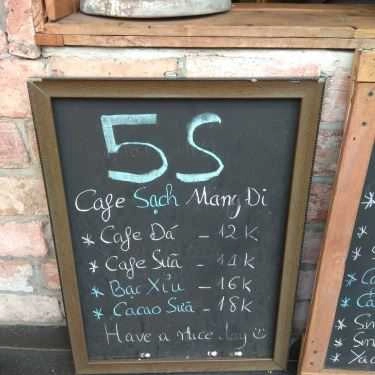 5S
Cafe Sạch Mang Đi
* Cafe Đá - 12K
* Cafe Sữa - 14K
* Bạc Xỉu - 16K
* Cacao Sữa - 18K
Have a nice day